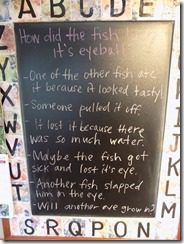 A B C D E
How did the fish
it's eyeball
- One of the other fish ate
it because it looked tasty!
- Someone pulled it off.
- It lost it because there
was so much water.
- Maybe the fish got
sick and lost it's eye.
- Another fish slapped
him on the eye.
- Will another eye grow in?
S R Q P O N